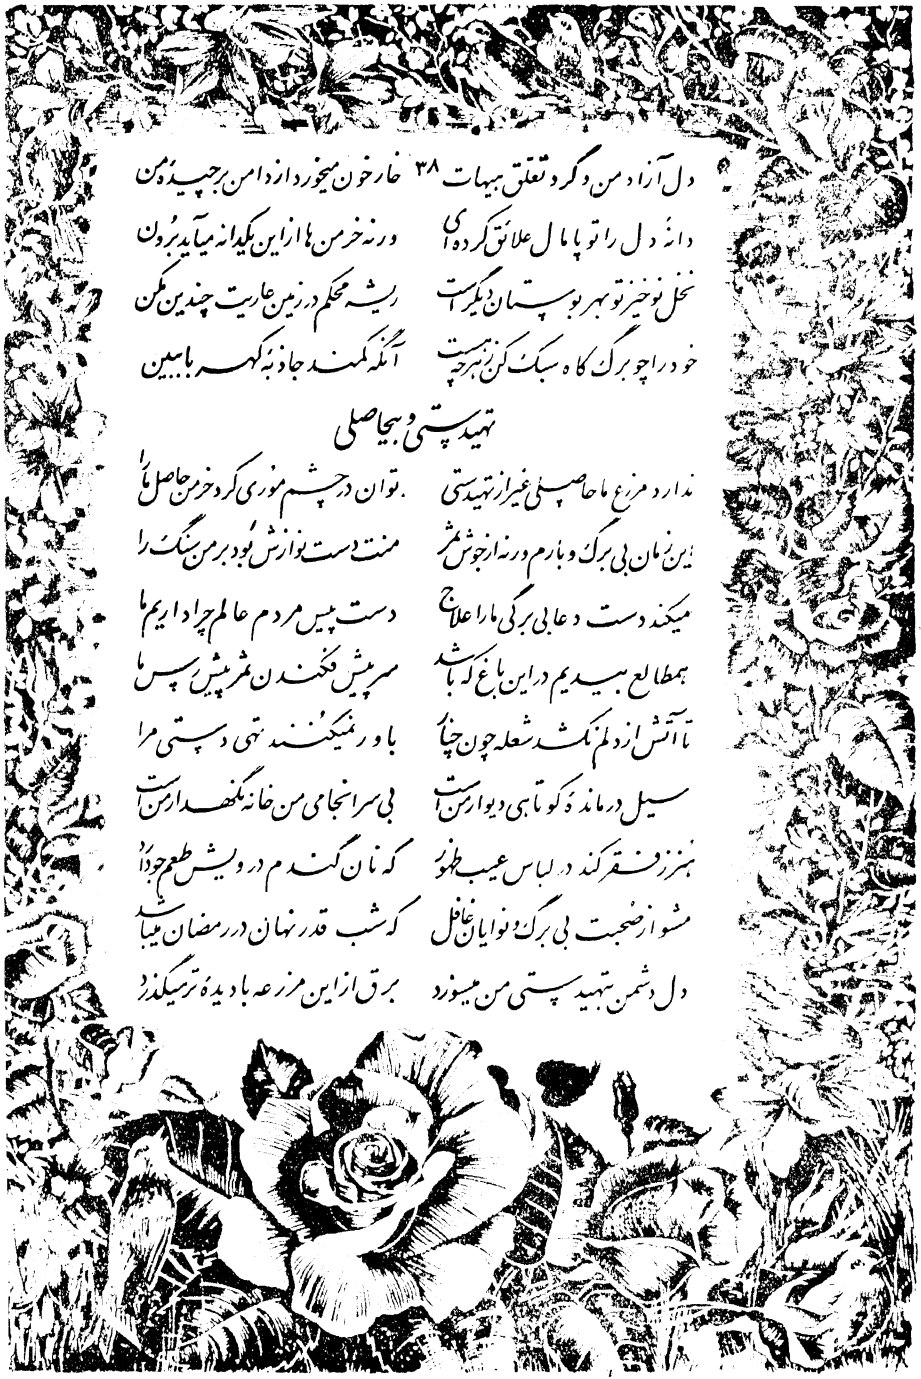 دل آزاد من و گرد تعلق هیهات ۳۸ خار خون میخورد از دامن برچیدهٔ من
دانهٔ دل را تو پامال علائق کرده‌ای ورنه خرمن‌ها از این یکدانه میآید برون
نخل نوخیز تو بهر بوستان دیگر است ریشه محکم در زمین عاریت چندین مکن
خود را چو برگ کاه سبک کن ز هرچه هست آنگه کمند جاذبهٔ کهربا ببین
تهیدستی و بیحاصلی
ندارد مزرع ما حاصلی غیر از تهیدستی توان در چشم موری کرد خرمن حاصل ما را
این زمان بی برگ و بارم ورنه از جوش ثمر منت دست نوازش بود بر من سنگ را
میکند دست دعا بی برگی ما را علاج دست پیش مردم عالم چرا داریم ما
بمطالع بیدیم در این باغ که باشد سر پیش فکندن ثمر پیش رس ما
تا آتش از دلم نکشد شعله چون چنار باور نمیکنند تهی دستی مرا
سیل درماندهٔ کوتاهی دیوار من است بی سرانجامی من خانه نگهدار من است
هنر ز فقر کند در لباس عیب ظهور که نان گندم درویش طعم جو دارد
مشو از صحبت بی برگ و نوایان غافل که شب قدر نهان در رمضان میباشد
دل دشمن بتهیدستی من میسوزد برق از این مزرعه با دیدهٔ تر میگذرد